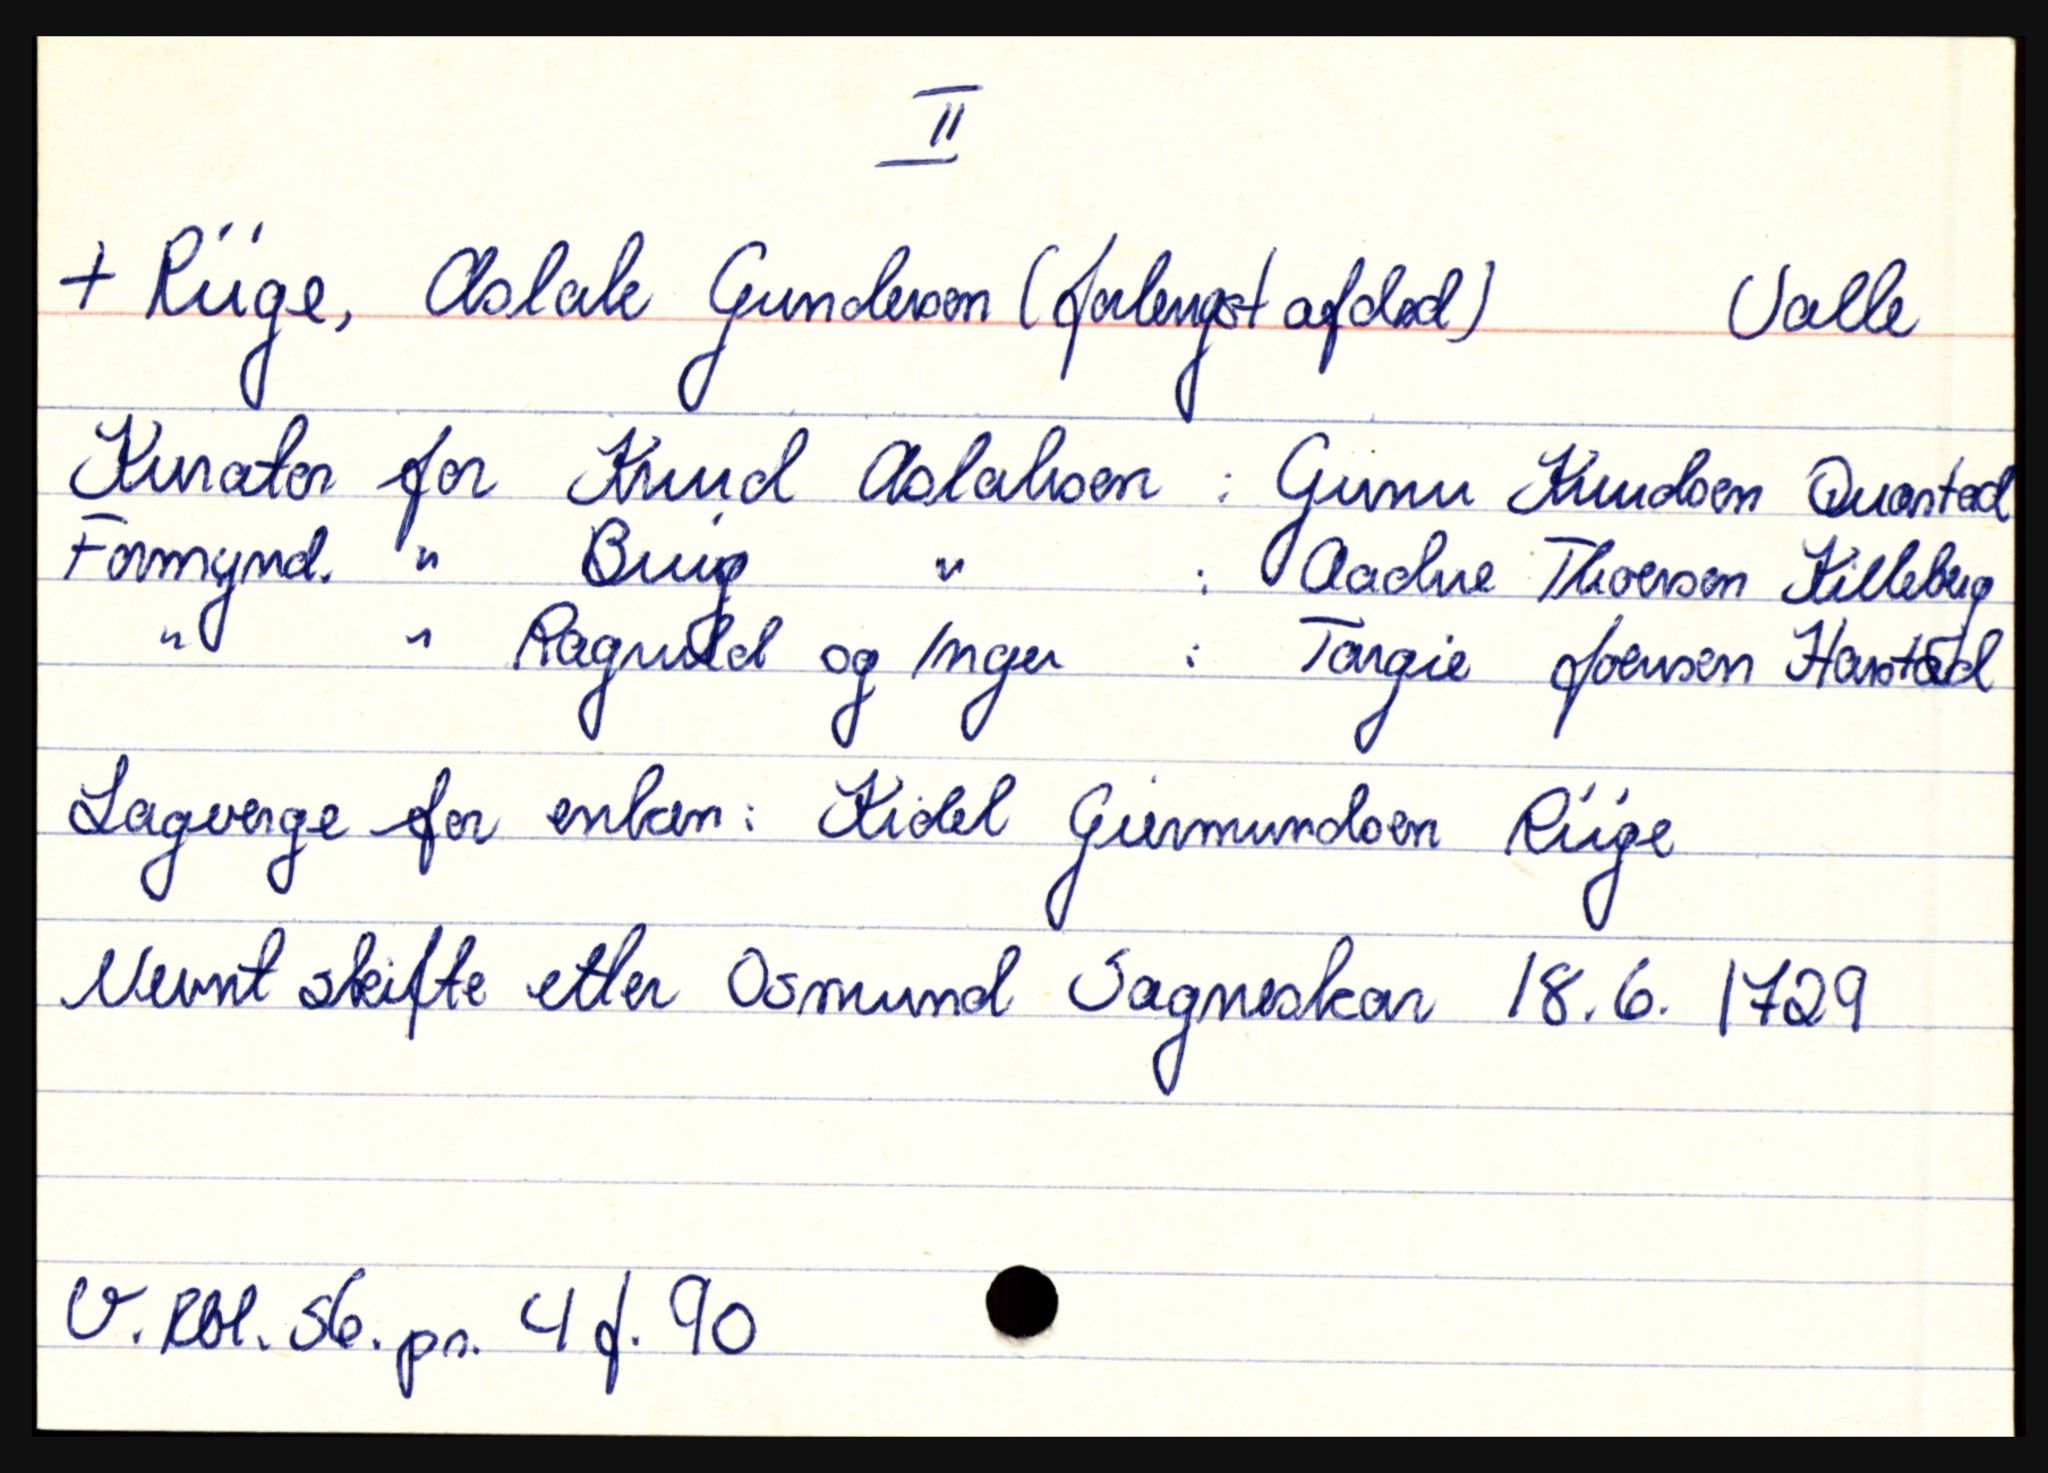 II
+ Riige, Aslak Gundersen (forlengst afdød) Valle
Kurator for Knud Aslaksen : Gunu Knudsen Quastad
Formynd. " Buig " : Aadne Thoersen Killeberg
" " Ragnild og Inger : Targie Joensen Harstad
Lagverge for enken: Kidel Giermundsen Riige
Nevnt skifte etter Osmund Sagneskar 18. 6. 1729
V. Rbl. 56. pr. 4 f. 90